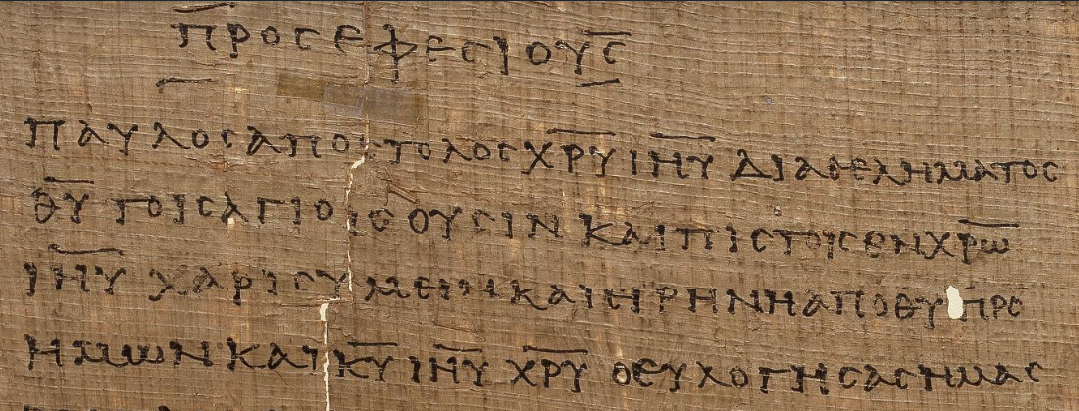 ΠΡΟΣ ΕΦΕΣΙΟΥΣ
ΠΑΥΛΟΣ ΑΠΟΣΤΟΛΟΣ ΧΡΥ ΙΗΥ ΔΙΑ ΘΕΛΗΜΑΤΟΣ
ΘΥ ΤΟΙΣ ΑΓΙΟΙΣ ΟΥΣΙΝ ΚΑΙ ΠΙΣΤΟΙΣ ΕΝ ΧΡΩ
ΙΗΥ ΧΑΡΙΣ ΥΜΕΙΝ ΚΑΙ ΕΙΡΗΝΗ ΑΠΟ ΘΥ ΠΡΣ
ΗΜΩΝ ΚΑΙ ΚΥ ΙΗΥ ΧΡΥ Ο ΕΥΛΟΓΗΣΑΣ ΗΜΑΣ